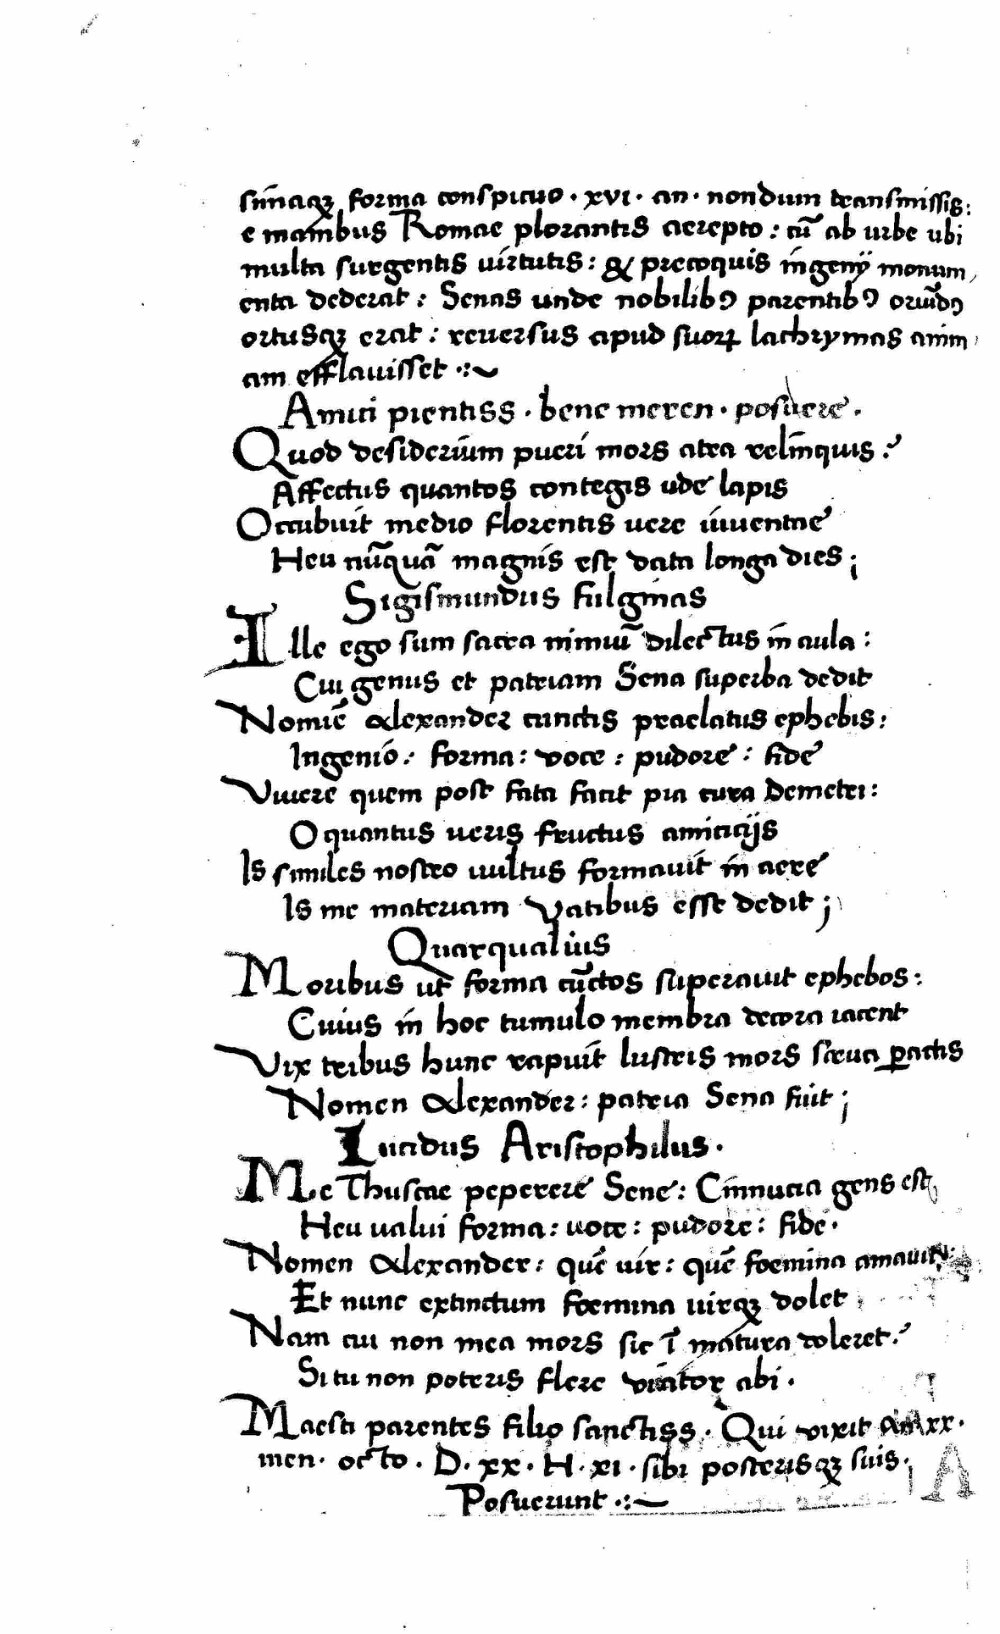 sum̄aqꝫ forma conspicuo · xvi · an · nondum transmissis:
e manibus Romae plorantis aerepto : cū ab urbe ubi
multa surgentis uirtutis : & precoquis ingenij monum
enta dederat : Senas unde nobilibꝰ parentibꝰ oriūdꝰ
ortusqꝫ erat : reuersus apud suoꝝ lachrymas anim
am efflauisset ·:~
Amici pientiss · bene meren · posuere ·
Quod desiderium pueri mors atra relinquis ?
Affectus quantos contegis ude lapis
Occubuit medio florentis uere iuuentae
Heu nūquā magnis est data longa dies ;
Sigismundus fulginas
Ille ego sum sacra nimiū dilectus in aula :
Cui genus et patriam Sena superba dedit
Nomiē Alexander cunctis praelatus ephebis :
Ingenio : forma : voce : pudore : fide
Viuere quem post fata facit pia cura Demetri :
O quantus ueris fructus amicicijs
Is similes nostro uultus formauit in aere
Is me materiam Vatibus esse dedit ;
Quarqualius
Moribus ut forma cūctos superauit ephebos :
Cuius in hoc tumulo membra decora iacent
Vix tribus hunc rapuit lustris mors saeua ꝑactis
Nomen Alexander : patria Sena fuit ;
Lucidus Aristophilus .
Me Thuscae peperere Sene : Cinnucia gens est
Heu ualui forma : uoce : pudore : fide .
Nomen Alexander : quē uir : quē foemina amauit :
Et nunc extinctum foemina uirqꝫ dolet
Nam cui non mea mors sic ī matura doleret ?
Si tu non poteris flere viator abi .
Maesti parentes filio sanctiss . Qui vixit an xx .
men · octo . D · xx · H · xi · sibi posterisqꝫ suis .
Posuerunt ·:~